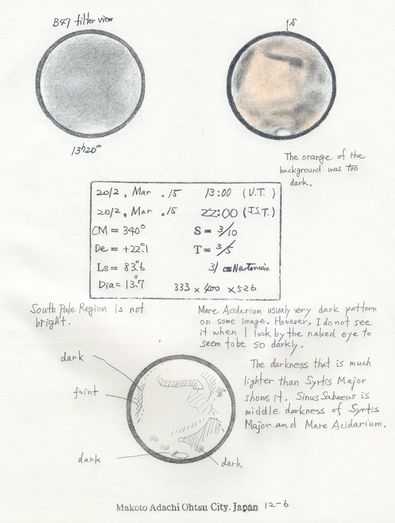 B47 filter view
S
13h20m
The orange of the
background was too
dark.
2012. Mar .15 13:00 (U.T.)
2012. Mar .15 22:00 (J.S.T.)
CM = 340° S = 3/10
De = +22.1 T = 3/5
Ls = 83.6 31 cm Newtonian
Dia = 13.7 333 × 400 × 526
South Pole Region is not
bright.
Mare Acidarium usualy very dark pattern
on some image. However, I do not see
it when I look by the naked eye to
seem to be so darkly.
dark
faint
dark
dark
The darkness that is much
lighter than Syrtis Major
shows it. Sinus Sabaeus is
middle darkness of Syrtis
Major and Mare Acidarium.
Makoto Adachi Ohtsu City. Japan 12-6